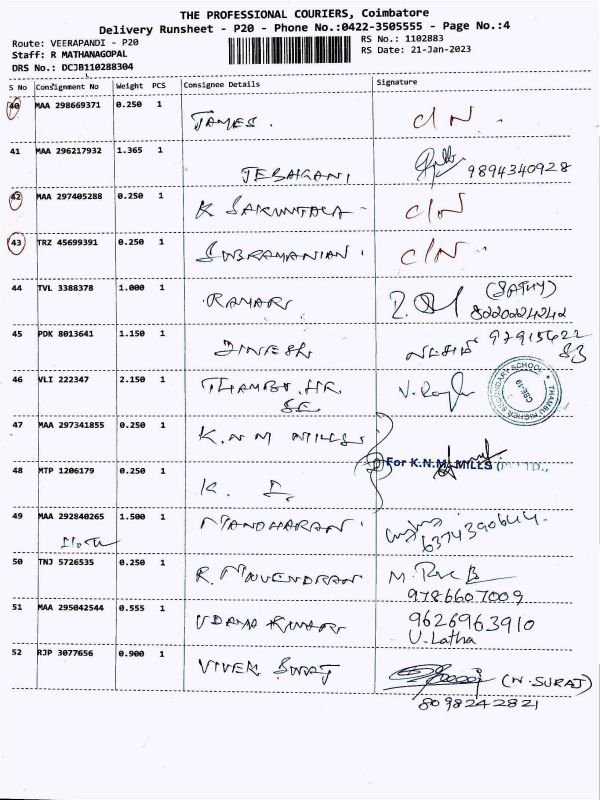 THE PROFESSIONAL COURIERS, Coimbatore
Delivery Runsheet - P20 - Phone No.:0422-3505555 - Page No.:4
Route: VEERAPANDI - P20
RS No.: 1102883
Staff: R MATHANAGOPAL
RS Date: 21-Jan-2023
DRS No.: DCJB110288304
S No Consignment No Weight PCS Consignee Details Signature
40 MAA 298669371 0.250 1
JAMES. C/N
41 MAA 296217932 1.365 1
JEBAGANI 9894340928
42 MAA 297405288 0.250 1
K SAKUNTALA C/N
43 TRZ 45699391 0.250 1
SUBRAMANIAN C/N
44 TVL 3388378 1.000 1
RAMAR (SATHY)
8220224242
45 PDK 8013641 1.150 1
DINESH 92915622
83
46 VLI 222347 2.150 1
THAMBU HR
SE
THAMBU HIGHER SECONDARY SCHOOL
CBE-19
47 MAA 297341855 0.250 1
K.N.M MILLS
For K.N.M. MILLS (P) LTD.,
48 MTP 1206179 0.250 1
K. I.
49 MAA 292840265 1.500 1
MANOHARAN
6374390644
50 TNJ 5726535 0.250 1
R. MUVENDRAN
9786607009
51 MAA 295042544 0.555 1
UDAYA KUMAR 9626963910
U.Latha
52 RJP 3077656 0.900 1
VIVEK SURAJ (N.SURAJ)
8098242821